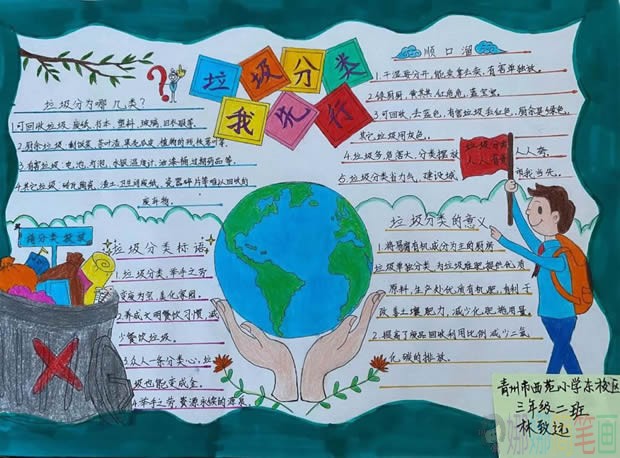 垃圾分类
我先行
顺口溜
1.干湿要分开,能卖拿去卖,有害单独放。
3.可回收,去蓝色,有害垃圾去红色,厨余是绿色,
其它垃圾用灰色。
4.垃圾多危害大,分类摆放人人夸。
5.垃圾分类省力气,建设城市我当先。
垃圾分类
人人有责
垃圾分为哪几类?
1.可回收垃圾:废纸、书本、塑料、玻璃、旧衣服等。
2.厨余垃圾:剩饭菜、茶叶渣、果壳瓜皮、植物的残枝落叶等。
3.有害垃圾:电池、灯泡、水银温度计、油漆桶、过期药品等。
4.其它垃圾:砖瓦陶瓷、渣土、卫生间废纸、瓷器碎片等难以回收的
废弃物。
待分类投放
垃圾分类标语
1.垃圾分类,举手之劳
变废为宝,美化家园。
2.养成文明餐饮习惯,减
少餐饮垃圾。
3.众人一条分类心,垃
圾也能变成金。
4.举手之劳,资源永续的源泉。
垃圾分类的意义
1.将易腐有机成分为主的厨房
垃圾单独分类,为垃圾堆肥提供优质
原料,生产处优质有机肥,有利于
改善土壤肥力,减少化肥施用量。
2.提高了废品回收利用比例,减少二氧
化碳的排放。
青州市西苑小学东校区
三年级二班
林致远
笔画